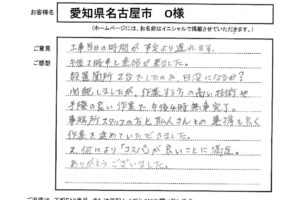 お客様名 愛知県名古屋市 O様
(ホームページには、お名前はイニシャルで掲載させていただきます。)
ご意見
ご感想
工事当日の時間が予定より遅れます。
午後2時半と連絡が来ました。
設置箇所2台でしたので、日没になるか?
心配しましたが、作業する方の高い技術や
手際の良い作業で、午後4時無事完了。
事務所スタッフの方と私人さんとの連携も良く
作業を進めていただきました。
又、何より「コスパ」が良いことに満足。
ありがとうございました。